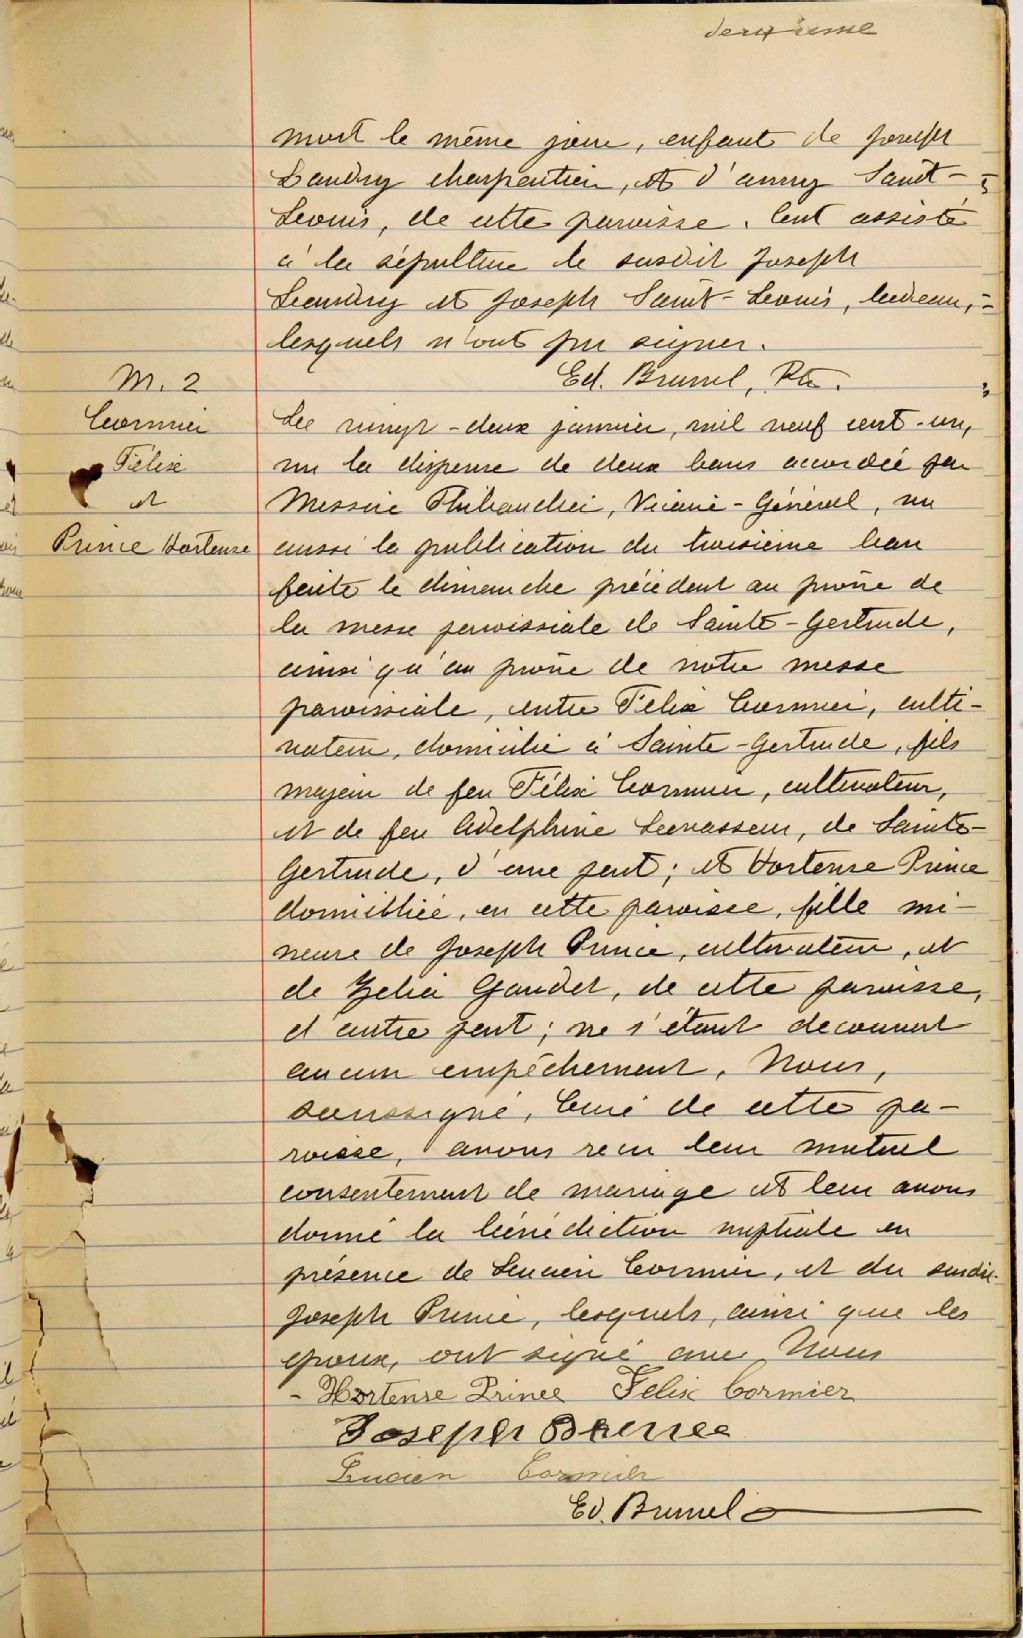 deuxième
mort le même jour, enfant de Joseph
Landry charpentier, et d'anny Saint-
Louis, de cette paroisse. Ont assisté
à la sépulture le susdit Joseph
Landry et Joseph Saint-Louis, bedeau,
lesquels n'ont pu signer.
Ed. Brunel, Ptre.
M. 2
Cormier
Félix
et
Prince Hortense
Le vingt-deux janvier, mil neuf cent-un,
vu la dispense de deux bans accordée par
Messire Thibaudier, Vicaire-Général, vu
aussi la publication du troisième ban
faite le dimanche précédent au prône de
la messe paroissiale de Sainte-Gertrude,
ainsi qu'au prône de notre messe
paroissiale, entre Félix Cormier, culti-
vateur, domicilié à Sainte-Gertrude, fils
majeur de feu Félix Cormier, cultivateur,
et de feu Adelphine Levasseur, de Sainte-
Gertrude, d'une part; et Hortense Prince
domiciliée, en cette paroisse, fille mi-
neure de Joseph Prince, cultivateur, et
de Zélia Gaudet, de cette paroisse,
d'autre part; ne s'étant decouvert
aucun empêchement, Nous,
soussigné, Curé de cette pa-
roisse, avons recu leur mutuel
consentement de mariage et leur avons
donné la bénédiction nuptiale en
présence de Lucien Cormier, et du susdit
Joseph Prince, lesquels, ainsi que les
époux, ont signé avec Nous
- Hortense Prince Felix Cormier
Joseph Prince
Lucien Cormier
Ed. Brunel